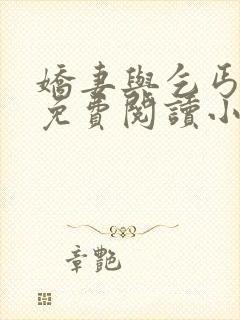 嬌妻與乞丐
免費閱讀小
章艷